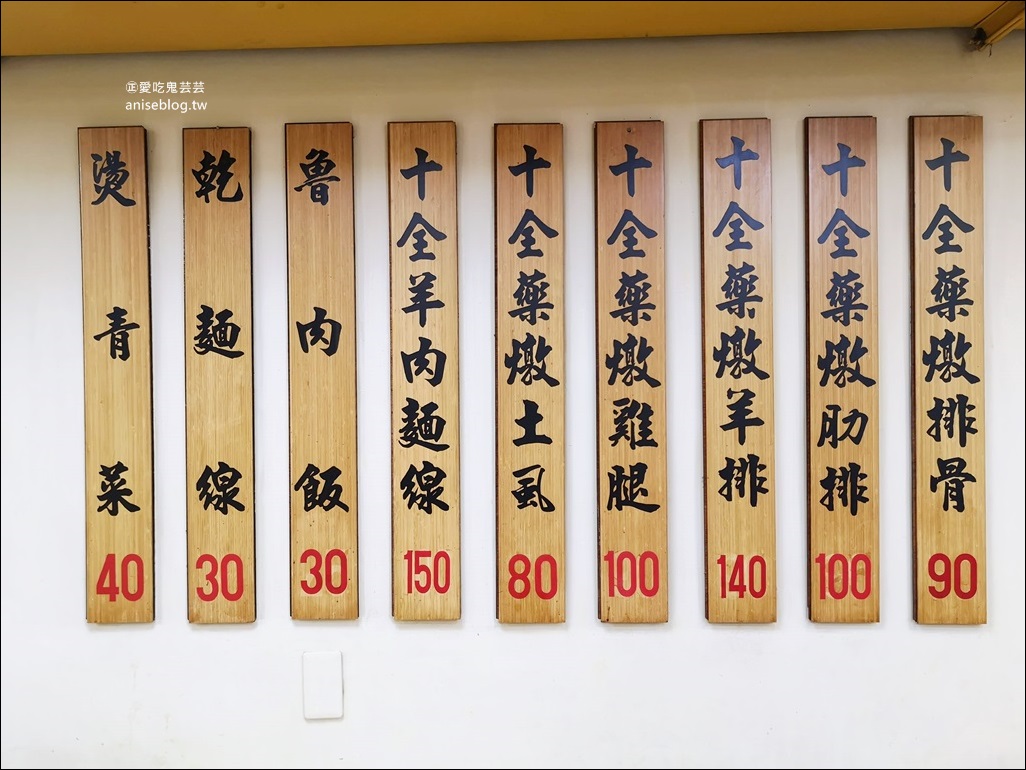 ㊣愛吃鬼芸芸
aniseblog.tw
十全藥燉排骨
90
十全藥燉肋排
100
十全藥燉羊排
140
十全藥燉雞腿
100
十全藥燉土虱
80
十全羊肉麵線
150
魯肉飯
30
乾麵線
30
燙青菜
40